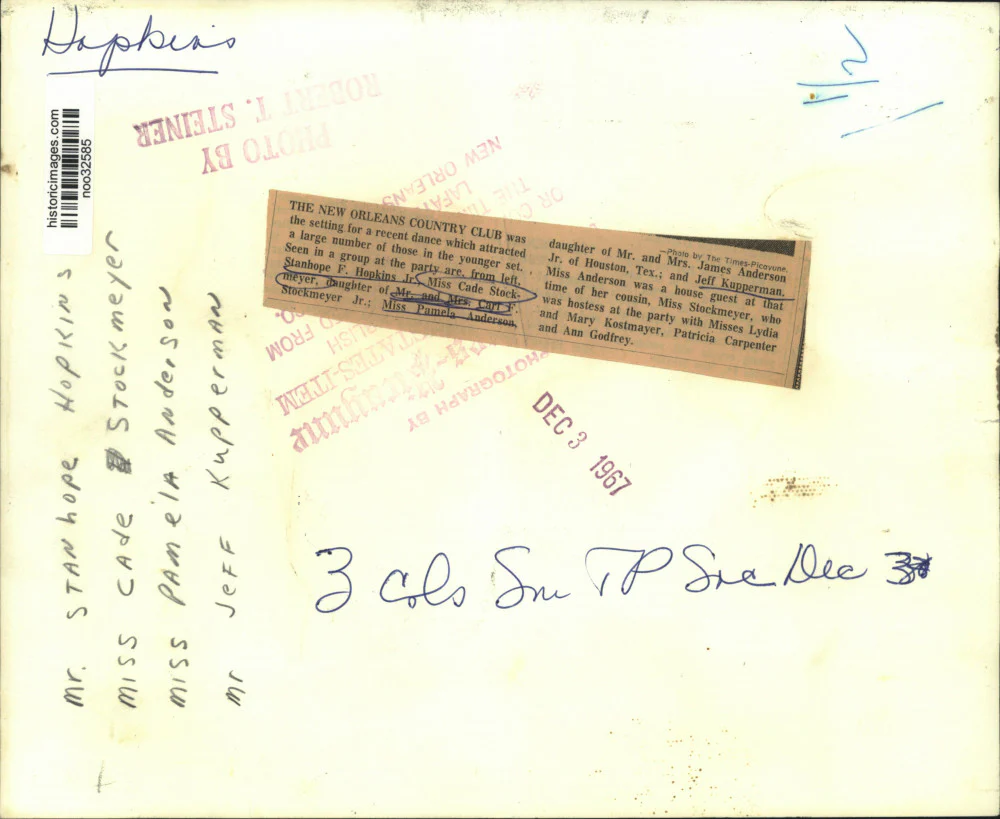 Hopkins
1/2
historicimages.com
noo32585
PHOTO BY
ROBERT T. STEINER
THE NEW ORLEANS COUNTRY CLUB was
the setting for a recent dance which attracted
a large number of those in the younger set.
Seen in a group at the party are, from left,
Stanhope F. Hopkins Jr.; Miss Cade Stock-
meyer, daughter of Mr. and Mrs. Carl F.
Stockmeyer Jr.; Miss Pamela Anderson,
—Photo by The Times-Picayune.
daughter of Mr. and Mrs. James Anderson
Jr. of Houston, Tex.; and Jeff Kupperman.
Miss Anderson was a house guest at that
time of her cousin, Miss Stockmeyer, who
was hostess at the party with Misses Lydia
and Mary Kostmayer, Patricia Carpenter
and Ann Godfrey.
PHOTOGRAPH BY
STATES-ITEM
FROM
CO.
NEW ORLEANS
DEC 3 1967
Mr. STANhope HOPKINS
MISS CAde STOCKMeyer
MISS PAMelA ANderSON
Mr JeFF KupperMAN
3 cols Sm TP Soc Dec 3